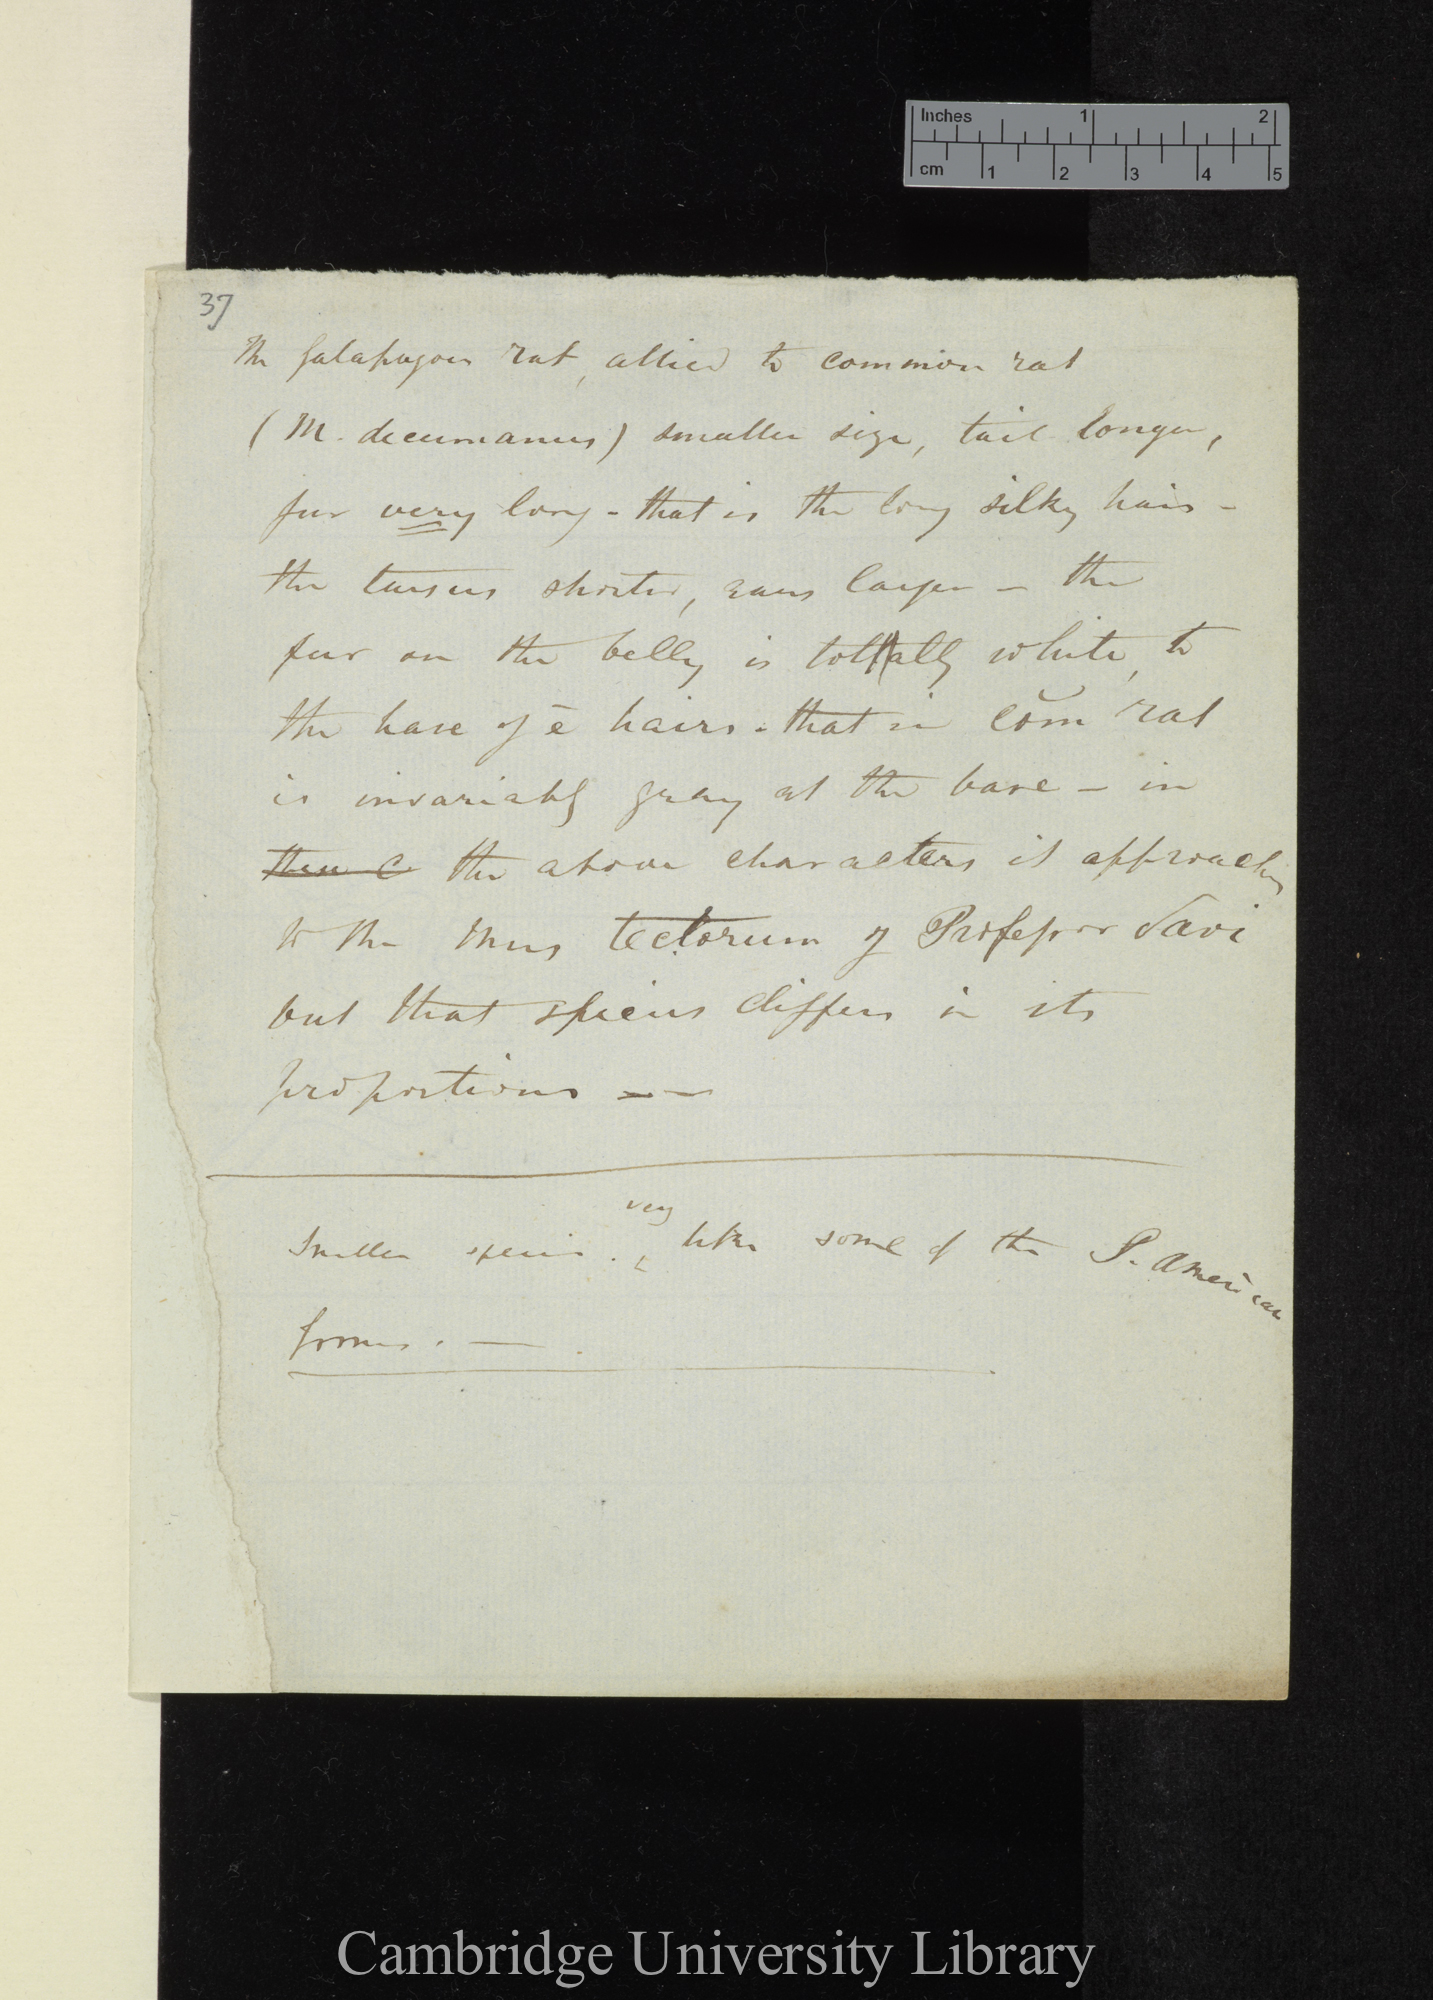 Inches 1 2
cm 1 2 3 4 5
37
The Galapagoes rat, allied to common rat
(M. decumanus) smaller size, tail longer,
fur very long - that is the long silky hairs -
the tarsus shorter, ears larger - the
fur on the belly is totally white, to
the base of ē hairs. that in com̄ rat
is invariably gray at the base - in
these c the above characters it approaches
to the Mus tectorum of Professor Savi
but that species differs in its
proportions — —
very
Smaller species. ‸ like some of the S. American
forms. —
Cambridge University Library